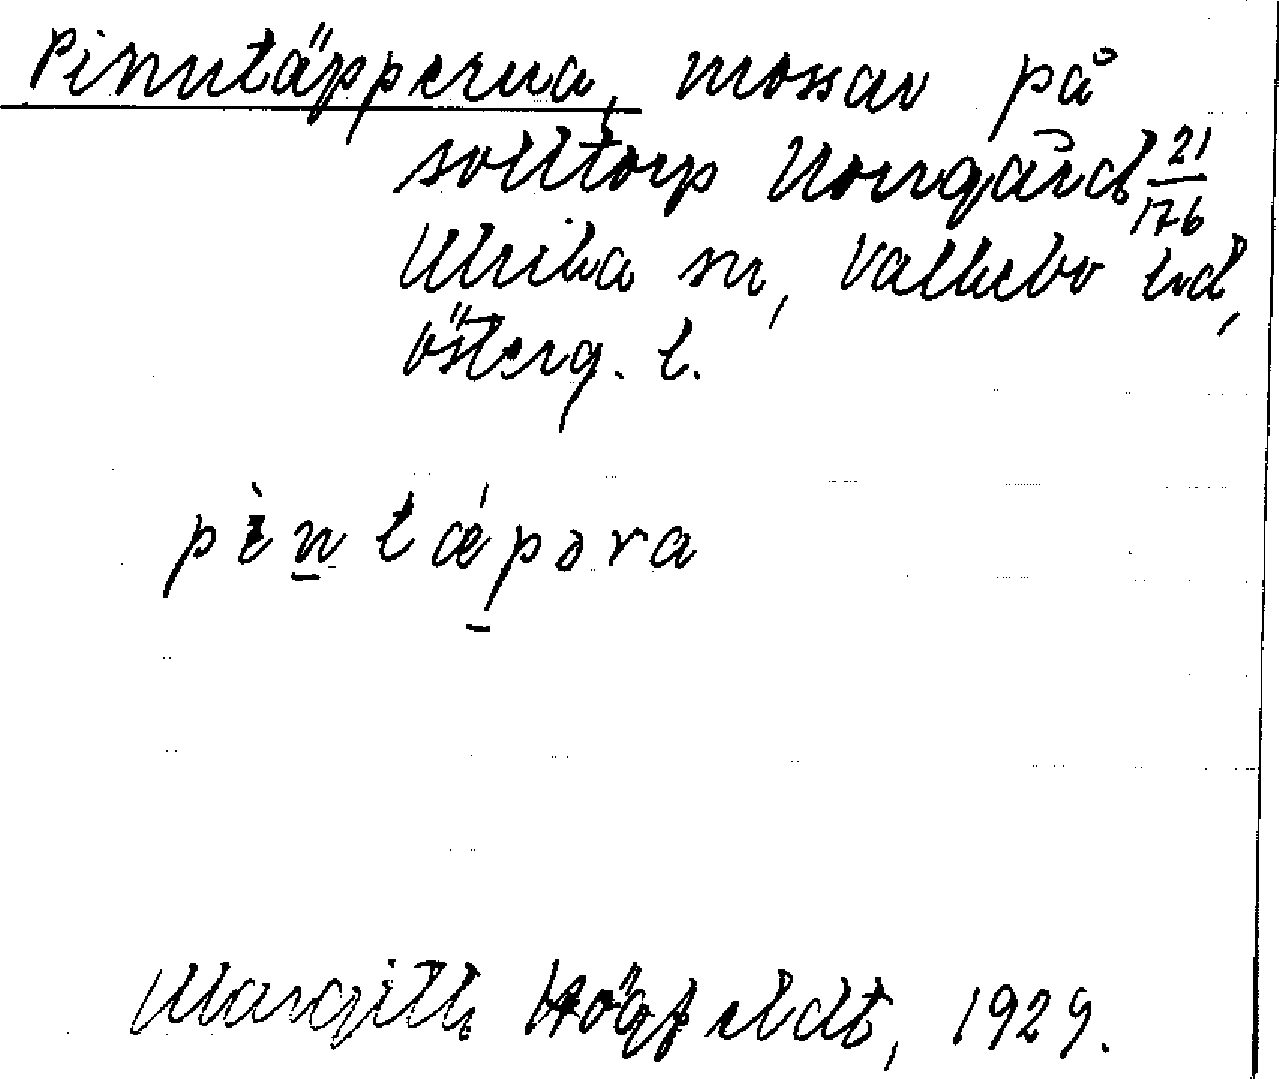 Pinntäpperna, mossar på
solltorp Korrgård 21/176
Ulrika sn, Valkebo hd,
Österg. l.
pìntǽpəra
Margith Högfeldt, 1929.